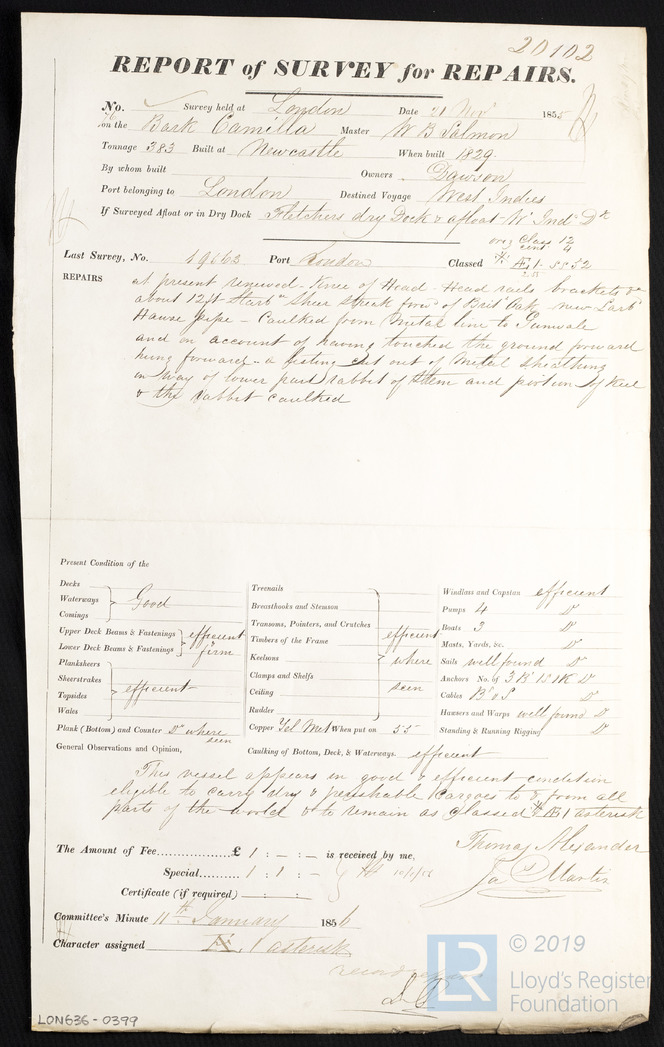 20102
REPORT of SURVEY for REPAIRS.
No. Survey held at London Date 21 Nov 1855
on the Bark Camilla Master W B Salmon
Tonnage 383 Built at Newcastle When built 1829
By whom built Owners Dawson
Port belonging to London Destined Voyage West Indies
If Surveyed Afloat or in Dry Dock Fletchers dry Dock & afloat W Ind Dk
Class 12
Last Survey, No. 19663 Port London Classed Æ 1
REPAIRS at present renewed - Knee of Head - Head rails brackets &c
about 12ft Starbd Sheer Streek forwd of Brit Oak - new Larbd
Hawse pipe - Caulked from Metal line to Gunwale
and on account of having touched the ground forward
hung forward - a listing cut out of Metal sheathing
in way of lower part rabbit of Stem and portion of Keel
& the rabbit caulked
Present Condition of the
Decks
Waterways Good
Comings
Upper Deck Beams & Fastenings efficient
Lower Deck Beams & Fastenings firm
Planksheers
Sheerstrakes
Topsides efficient
Wales
Plank (Bottom) and Counter Do where seen
Treenails
Breasthooks and Stemson
Transoms, Pointers, and Crutches
Timbers of the Frame efficient
Keelsons where
Clamps and Shelfs
Ceiling seen
Rudder
Copper Yel Met When put on 55
Windlass and Capstan efficient
Pumps 4 Do
Boats 3 Do
Masts, Yards, &c. Do
Sails well found Do
Anchors No. of 3 B 1 S 1 K Do
Cables Do
Hawsers and Warps well found Do
Standing & Running Rigging Do
General Observations and Opinion, Caulking of Bottom, Deck, & Waterways. efficient
This vessel appears in good & efficient condition
eligible to carry dry & perishable Cargoes to & from all
parts of the world & to remain as Classed Æ 1 asterisk
The Amount of Fee £ 1 : - : - is received by me, Thomas Alexander
Special 1 : 1 : - Jas Martin
Certificate (if required) - : - :
Committee's Minute 11th January 1856
Character assigned Æ 1 asterisk
LON636-0399
LR
© 2019
Lloyd's Register
Foundation